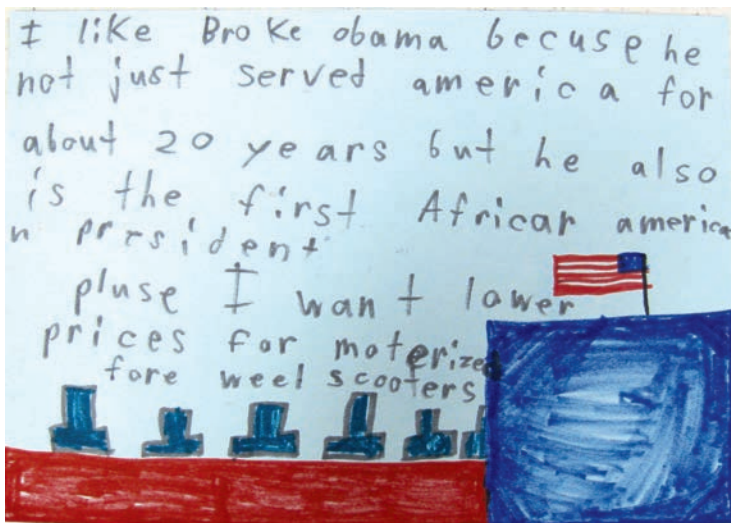 I like Broke obama becuse he
not just served america for
about 20 years but he also
is the first Africar america
n president
pluse I want lower
prices for moterized
fore weel scooters